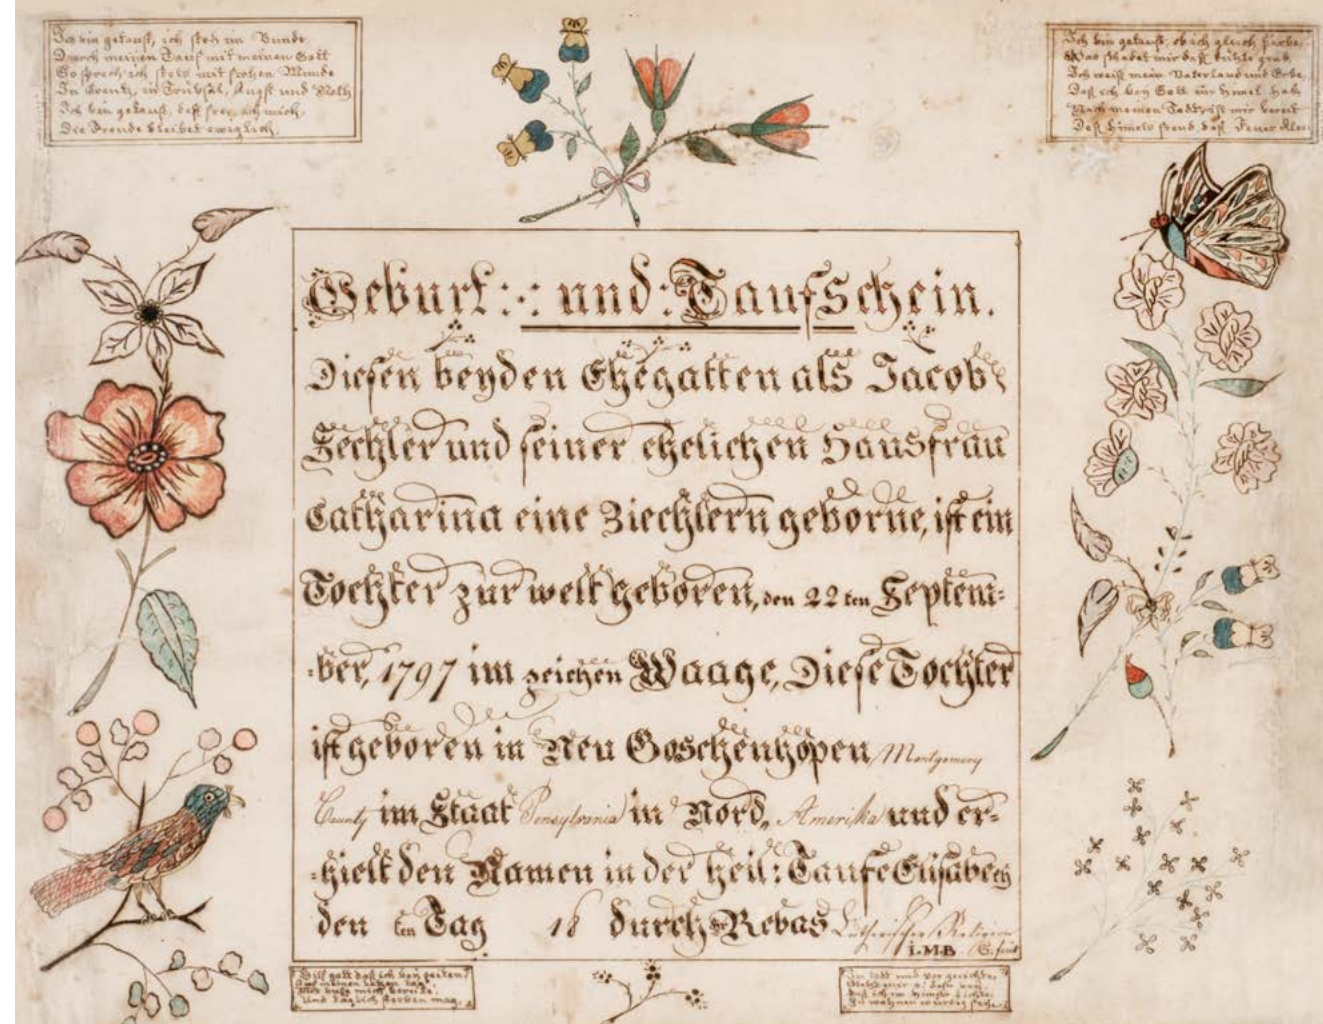 Ich bin getauft, ich steh im Bunde
Durch meinen Tauf mit meinen Gott
So sprech ich stets mit frohen Munde
In Creutz, in Trübsal, Angst und Noth
Ich bin getauft, deß freu ich mich,
Die Freude bleibet ewiglich,
Ich bin getauft, ob ich gleich sterbe,
Was schadet mir daß kühle grab,
Ich weiß mein Vaterland und Erbe,
Daß ich bey Gott im Himel hab
Nach meinen Todt, ist mir bereit
Deß Himels freud daß Feuer
Geburt :·: und : Taufschein.
Diesen beyden Ehegatten als Jacob
Zechler und seiner ehelichen Hausfrau
Catharina eine Ziechlern geborne, ist ein
Tochter zur welt geboren, den 22ten Septem=
=ber, 1797 im zeichen Waage, Diese Tochter
ist geboren in Neu Goschenhopen / Montgomery
County im Staat Pensylvania in Nord, Amerika und er=
=hielt den Namen in der heil: Taufe Elisabeth
den ten Tag 18 durch Lutherischer Religion
I.M.B fecit
Hilf gott daß ich bey zeiten
Auf meinen letzten tag
Mit buße mich bereite
Und täglich sterben mag.
Im todt und vor gerichte,